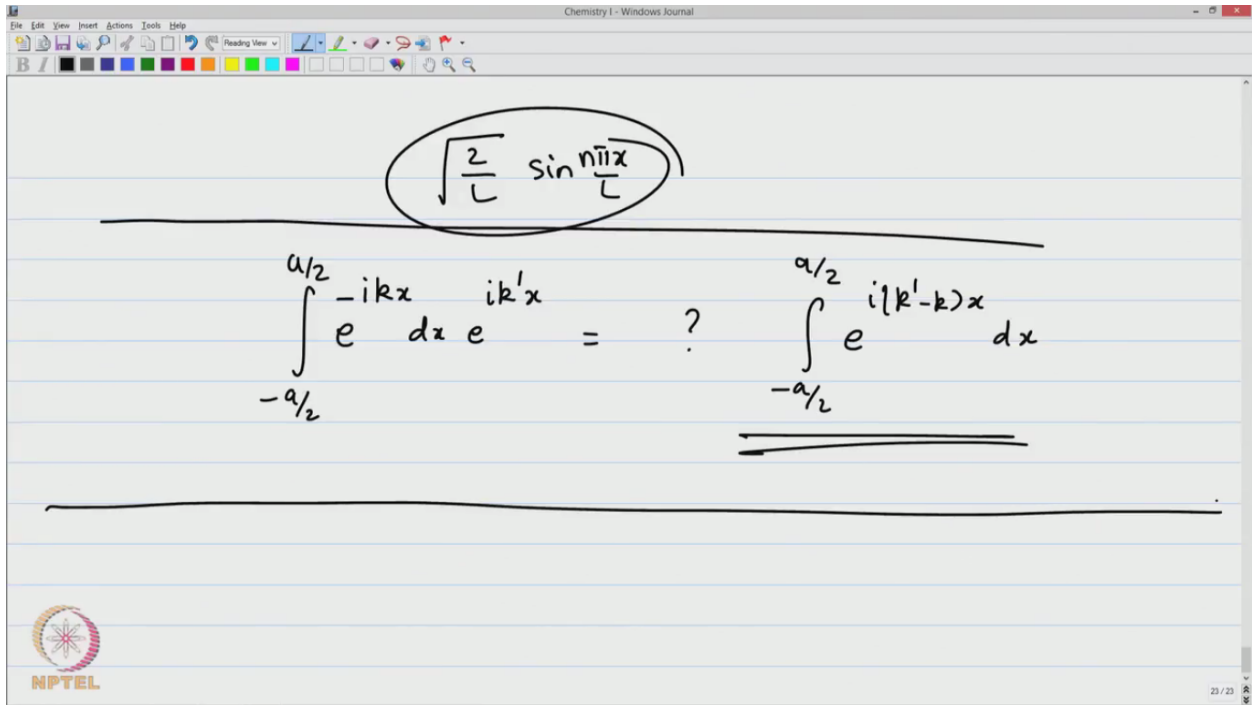 Chemistry I - Windows Journal
File Edit View Insert Actions Tools Help
Reading View
B I
√(2/L) sin nπx/L
∫_{-a/2}^{a/2} e^{-ikx} dx e^{ik'x} = ? ∫_{-a/2}^{a/2} e^{i(k'-k)x} dx
NPTEL
23 / 23